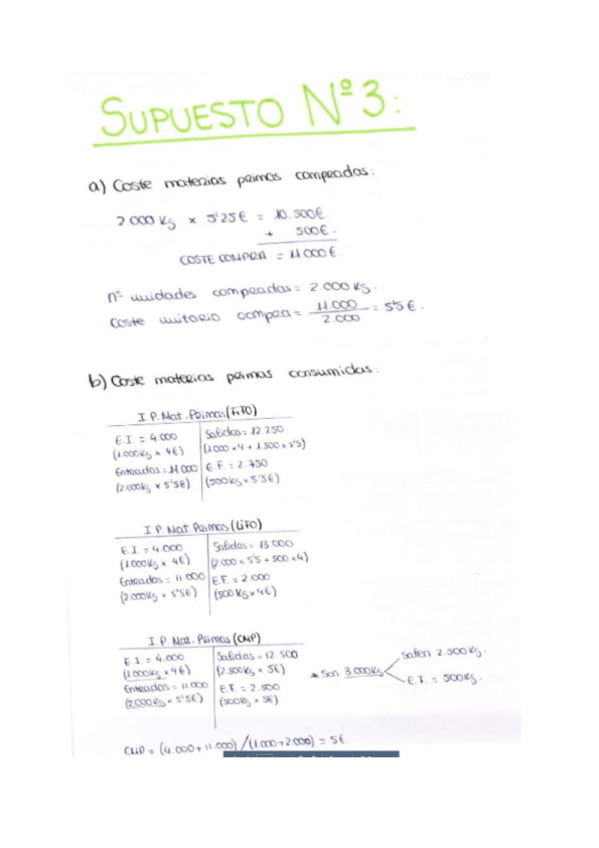 SUPUESTO Nº 3:
a) Coste materias primas compradas:
2.000 Kg x 5'25€ = 10.500€
+ 500€.
COSTE COMPRA = 11.000€.
nº unidades compradas = 2.000 Kg.
Coste unitario compra = 11.000 / 2.000 = 5'5€.
b) Coste materias primas consumidas:
I.P. Mat. Primas (FIFO)
E.I. = 4.000 Salidas = 12.250
(1.000Kg x 4€) (1.000 x 4 + 1.500 x 5'5)
Entradas = 11.000 E.F. = 2.750
(2.000Kg x 5'5€) (500Kg x 5'5€)
I.P. Mat. Primas (LIFO)
E.I = 4.000 Salidas = 13.000
(1.000Kg x 4€) (2.000 x 5'5 + 500 x 4)
Entradas = 11.000 E.F. = 2.000
(2.000Kg x 5'5€) (500 Kg x 4€)
I.P. Mat. Primas (CMP)
E.I = 4.000 Salidas = 12.500
(1.000Kg x 4€) (2.500Kg x 5€)
Entradas = 11.000 E.F. = 2.500
(2.000Kg x 5'5€) (500Kg x 5€)
* Son 3.000Kg
Salen 2.500 Kg.
E.F. = 500Kg.
CMP = (4.000 + 11.000) / (1.000 + 2.000) = 5€